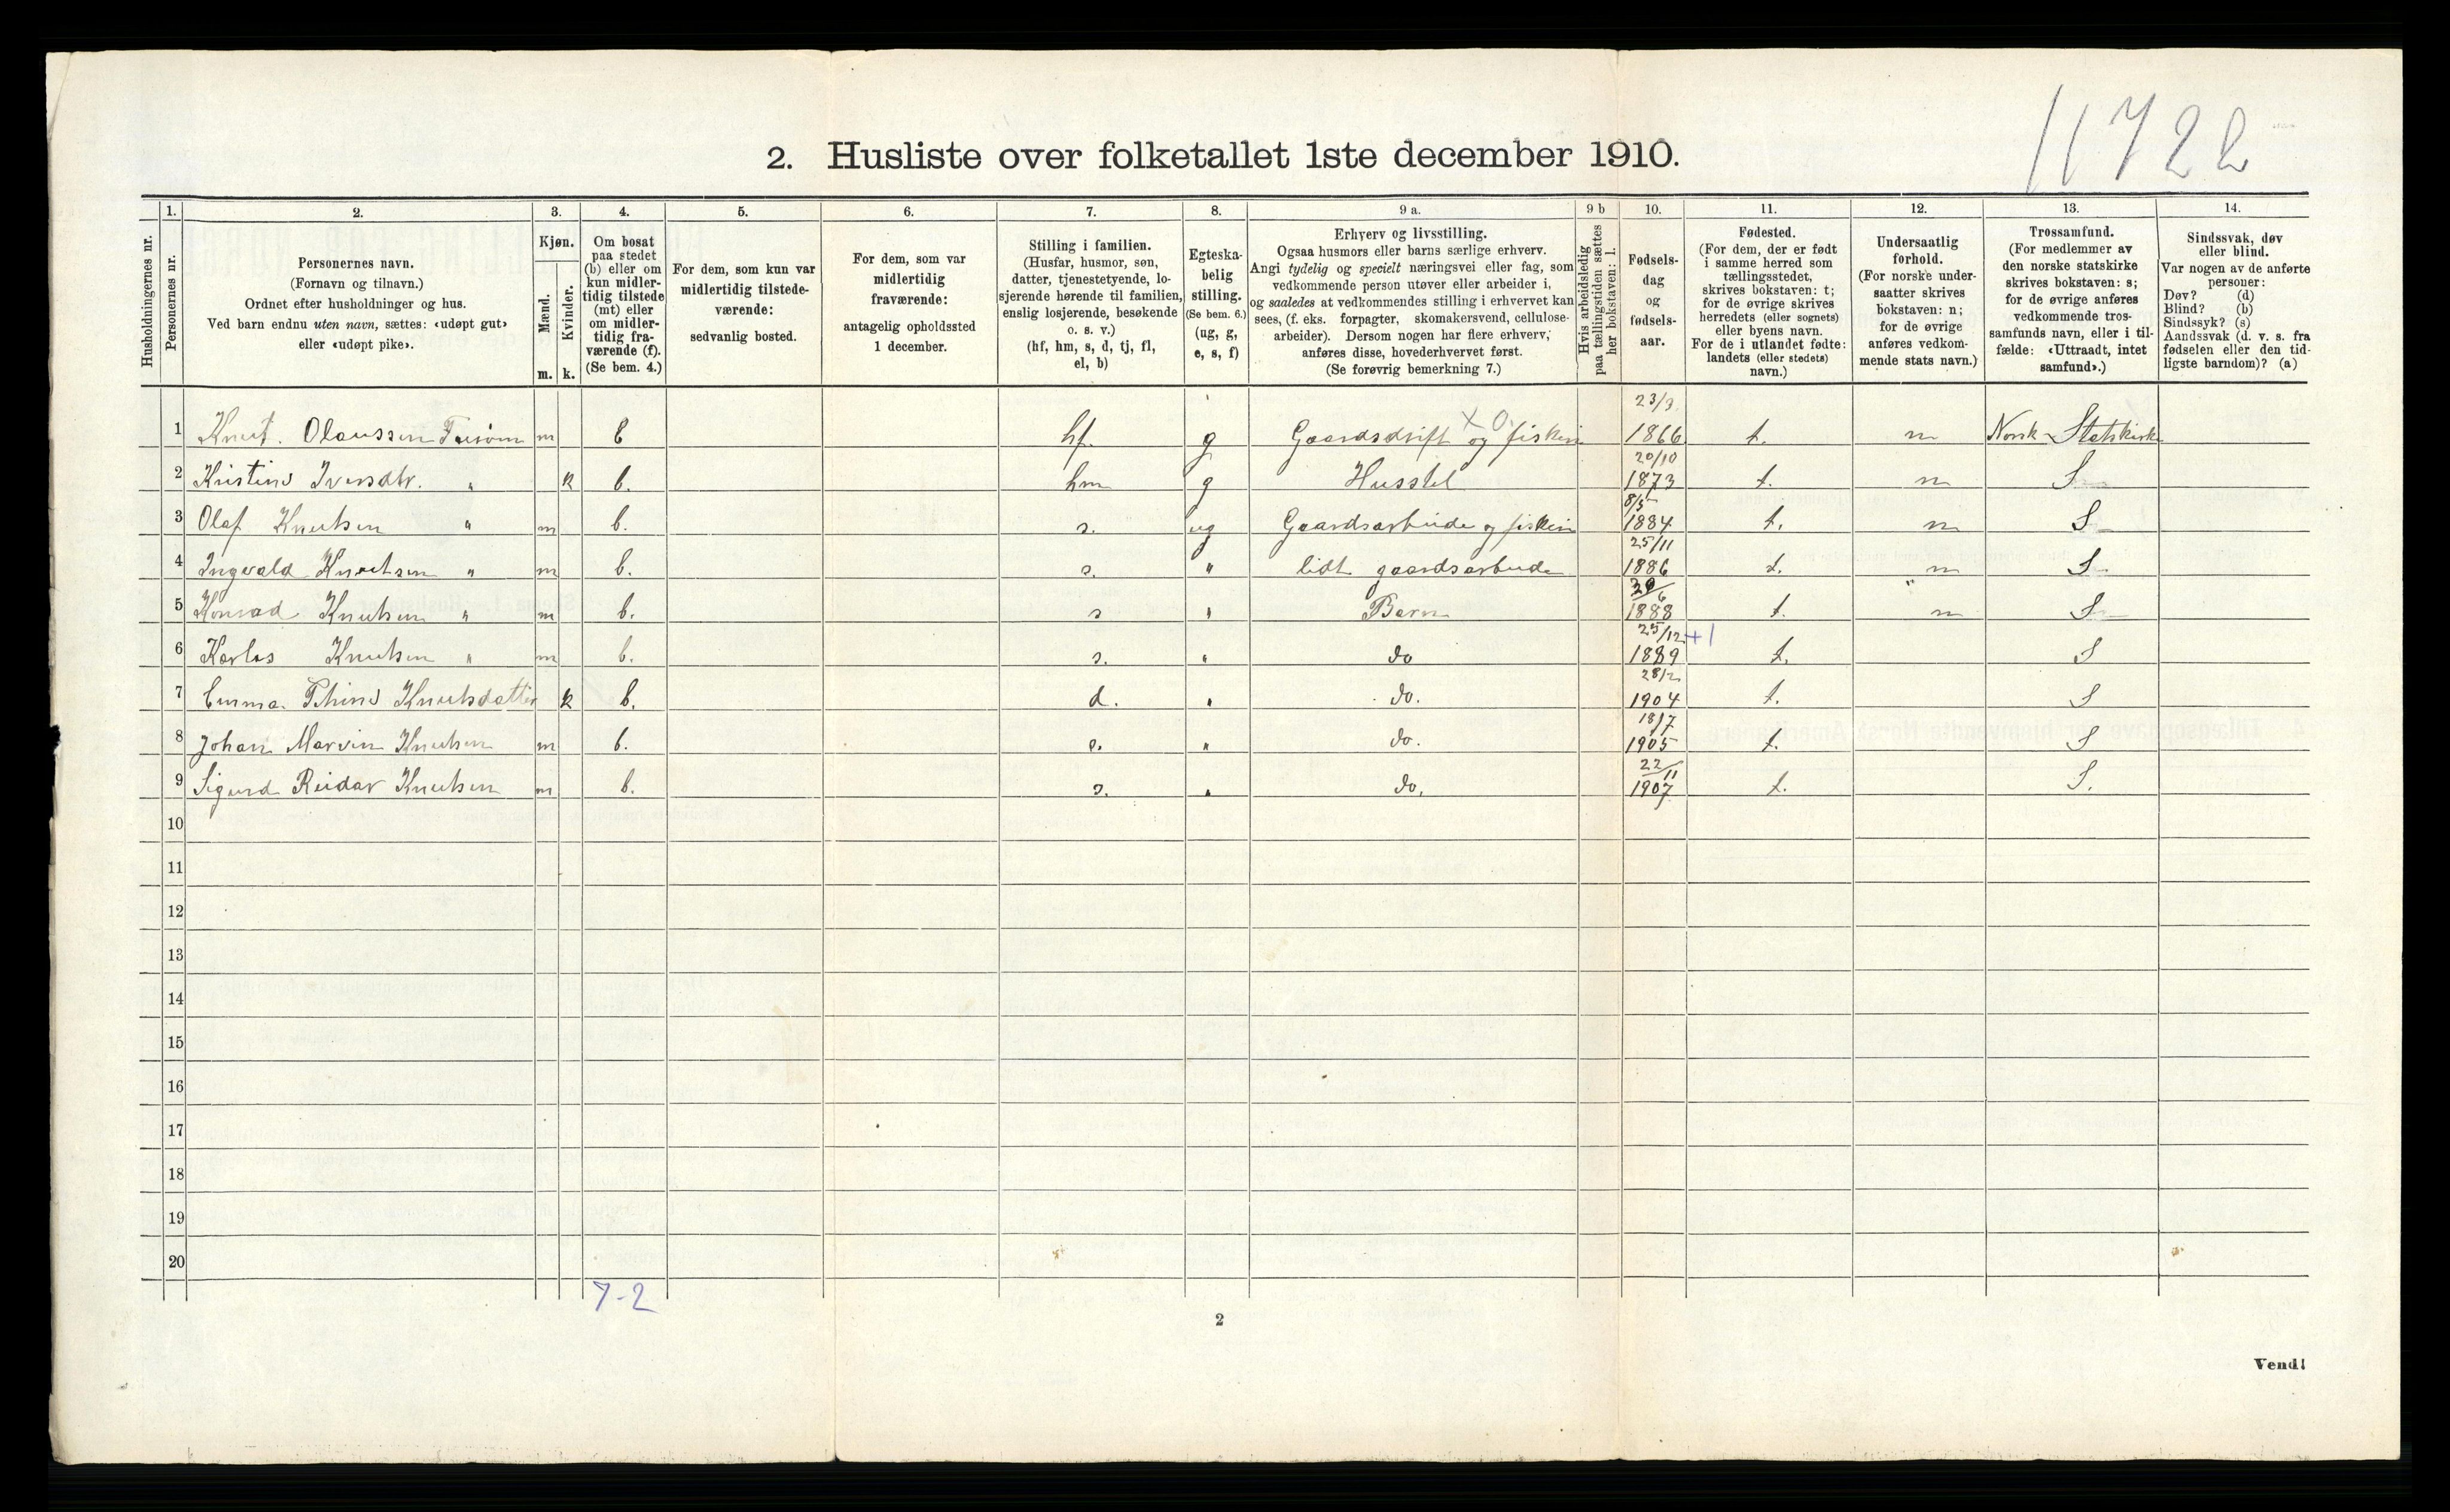 11722
2. Husliste over folketallet 1ste december 1910.
Husholdningernes nr.
1.
Personernes nr.
2.
Personernes navn.
(Fornavn og tilnavn.)
Ordnet efter husholdninger og hus.
Ved barn endnu uten navn, sættes: «udøpt gut»
eller «udøpt pike».
3.
Kjøn.
Mænd.
Kvinder.
m. k.
4.
Om bosat
paa stedet
(b) eller om
kun midler-
tidig tilstede
(mt) eller
om midler-
tidig fra-
værende (f).
(Se bem. 4.)
5.
For dem, som kun var
midlertidig tilstede-
værende:
sedvanlig bosted.
6.
For dem, som var
midlertidig
fraværende:
antagelig opholdssted
1 december.
7.
Stilling i familien.
(Husfar, husmor, søn,
datter, tjenestetyende, lo-
sjerende hørende til familien,
enslig losjerende, besøkende
o. s. v.)
(hf, hm, s, d, tj, fl,
el, b)
8.
Egteska-
belig
stilling.
(Se bem. 6.)
(ug, g,
e, s, f)
9 a.
Erhverv og livsstilling.
Ogsaa husmors eller barns særlige erhverv.
Angi tydelig og specielt næringsvei eller fag, som
vedkommende person utøver eller arbeider i,
og saaledes at vedkommendes stilling i erhvervet kan
sees, (f. eks. forpagter, skomakersvend, cellulose-
arbeider). Dersom nogen har flere erhverv,
anføres disse, hovederhvervet først.
(Se forøvrig bemerkning 7.)
9 b
Hvis arbeidsledig
paa tællingstiden sættes
her bokstaven: l.
10.
Fødsels-
dag
og
fødsels-
aar.
11.
Fødested.
(For dem, der er født
i samme herred som
tællingsstedet,
skrives bokstaven: t;
for de øvrige skrives
herredets (eller sognets)
eller byens navn.
For de i utlandet fødte:
landets (eller stedets)
navn.)
12.
Undersaatlig
forhold.
(For norske under-
saatter skrives
bokstaven: n;
for de øvrige
anføres vedkom-
mende stats navn.)
13.
Trossamfund.
(For medlemmer av
den norske statskirke
skrives bokstaven: s;
for de øvrige anføres
vedkommende tros-
samfunds navn, eller i til-
fælde: «Uttraadt, intet
samfund».)
14.
Sindssvak, døv
eller blind.
Var nogen av de anførte
personer:
Døv? (d)
Blind? (b)
Sindssyk? (s)
Aandssvak (d. v. s. fra
fødselen eller den tid-
ligste barndom)? (a)
1 Knut. Olaussen m b hf. g Gaardsdrift og fiskeri X O 23/3 1866 t. n Norsk Statskirke
2 Kristine Iversdtr. " k b. hm g Husstel 20/10 1873 t. n S
3 Olaf Knutsen " m b. s. ug Gaardsarbeide og fiskeri 8/5 1884 t. n S
4 Ingvald Knutsen " m b. s. " lidt gaardsarbeide 25/11 1886 t. n S.
5 Konrad Knutsen " m b. s " Barn 6 1888 t. " n S
6 Karlos Knutsen " m b. s. " do 25/12 +1 1889 t. S
7 Emma Knutsdatter k b. d. " do. 28/2 1904 t. S
8 Johan Marvin Knutsen m b. s. " do. 18/7 1905 t. S
9 Sigurd Reidar Knutsen m b. s. " do. 22/11 1907 t. S.
10
11
12
13
14
15
16
17
18
19
20
7-2
2
Vend!